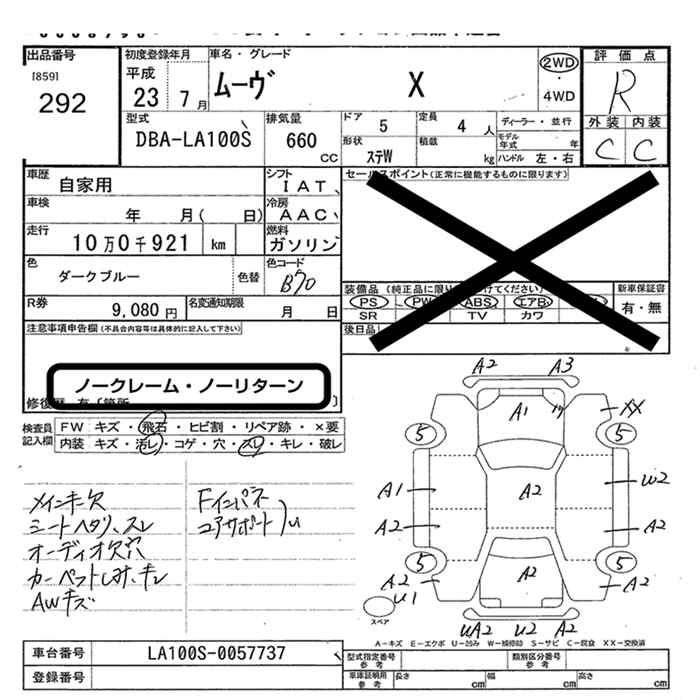 出品番号
[859]
292
初度登録年月
平成
23 7月
車名・グレード
ムーヴ X
2WD
・
4WD
評価点
R
外装 内装
C C
型式
DBA-LA100S
排気量
660
cc
ドア
5
定員
4 人
ディーラー・並行
モデル年式 年
形状
ステW
積載
kg
ハンドル 左・右
車歴
自家用
シフト
IAT
車検
年 月( 日)
冷房
AAC
走行
10万0千921 km
燃料
ガソリン
色
ダークブルー
色替
色コード
B70
R券
9,080円
名変通知期限
月 日
セールスポイント(正常に機能するものに限ります)
装備品(純正品に限り
けてください)
PS PW ABS エアB
SR TV カワ
新車保証書
有・無
後日品
注意事項申告欄(不具合内容等は具体的に記入して下さい)
ノークレーム・ノーリターン
修復歴 有〔箇所 〕
検査員
記入欄
FW キズ・飛石・ヒビ割・リペア跡・×要
内装 キズ・汚レ・コゲ・穴・スレ・キレ・破レ
メインキー欠
シートヘタリ、スレ
オーディオ欠穴
カーペットしみ、キレ
AWキズ
Fインパネ
コアサポート
U
A2 A3
A1
XX
5 5
A1 A2 W2
A2 A2
5 5
A2 A2 A2
U1
スペア
UA2 U2 A2
A-キズ E-エクボ U-凹み W-補修跡 S-サビ C-腐食 XX-交換済
車台番号
LA100S-0057737
登録番号
型式指定番号
参考
類別区分番号
参考
車庫証明用
参考
長さ cm
幅 cm
高さ cm